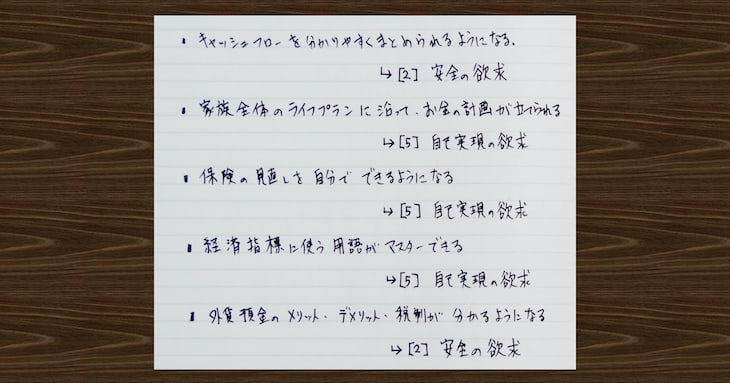 ・キャッシュフローを分かりやすくまとめられるようになる.
↳[2] 安全の欲求
・家族全体のライフプランに沿って、お金の計画が立てられる
↳[5] 自己実現の欲求
・保険の見直しを自分でできるようになる
↳[5] 自己実現の欲求
・経済指標に使う用語がマスターできる
↳[5] 自己実現の欲求
・外貨預金のメリット・デメリット・税制が分かるようになる
↳[2] 安全の欲求